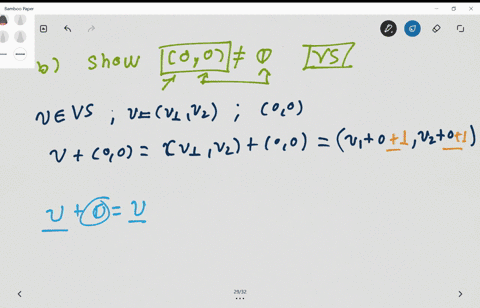 Bamboo Paper
b) show (0,0) ≠ 0 VS
v ∈ VS ; v = (v1, v2) ; (0,0)
v + (0,0) = (v1, v2) + (0,0) = (v1 + 0 + 1, v2 + 0 + 1)
v + 0 = v
29/32